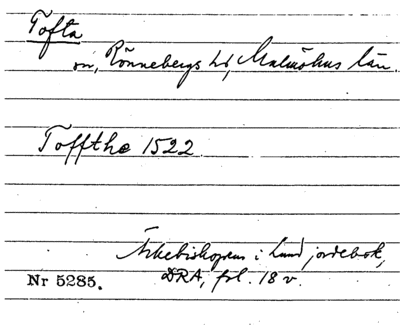 Tofta
on, Rönnebergs hd, Malmöhus län.
Toffthe 1522
Ärkebiskopens i Lund jordebok,
DRA, fol. 18 v.
Nr 5285.